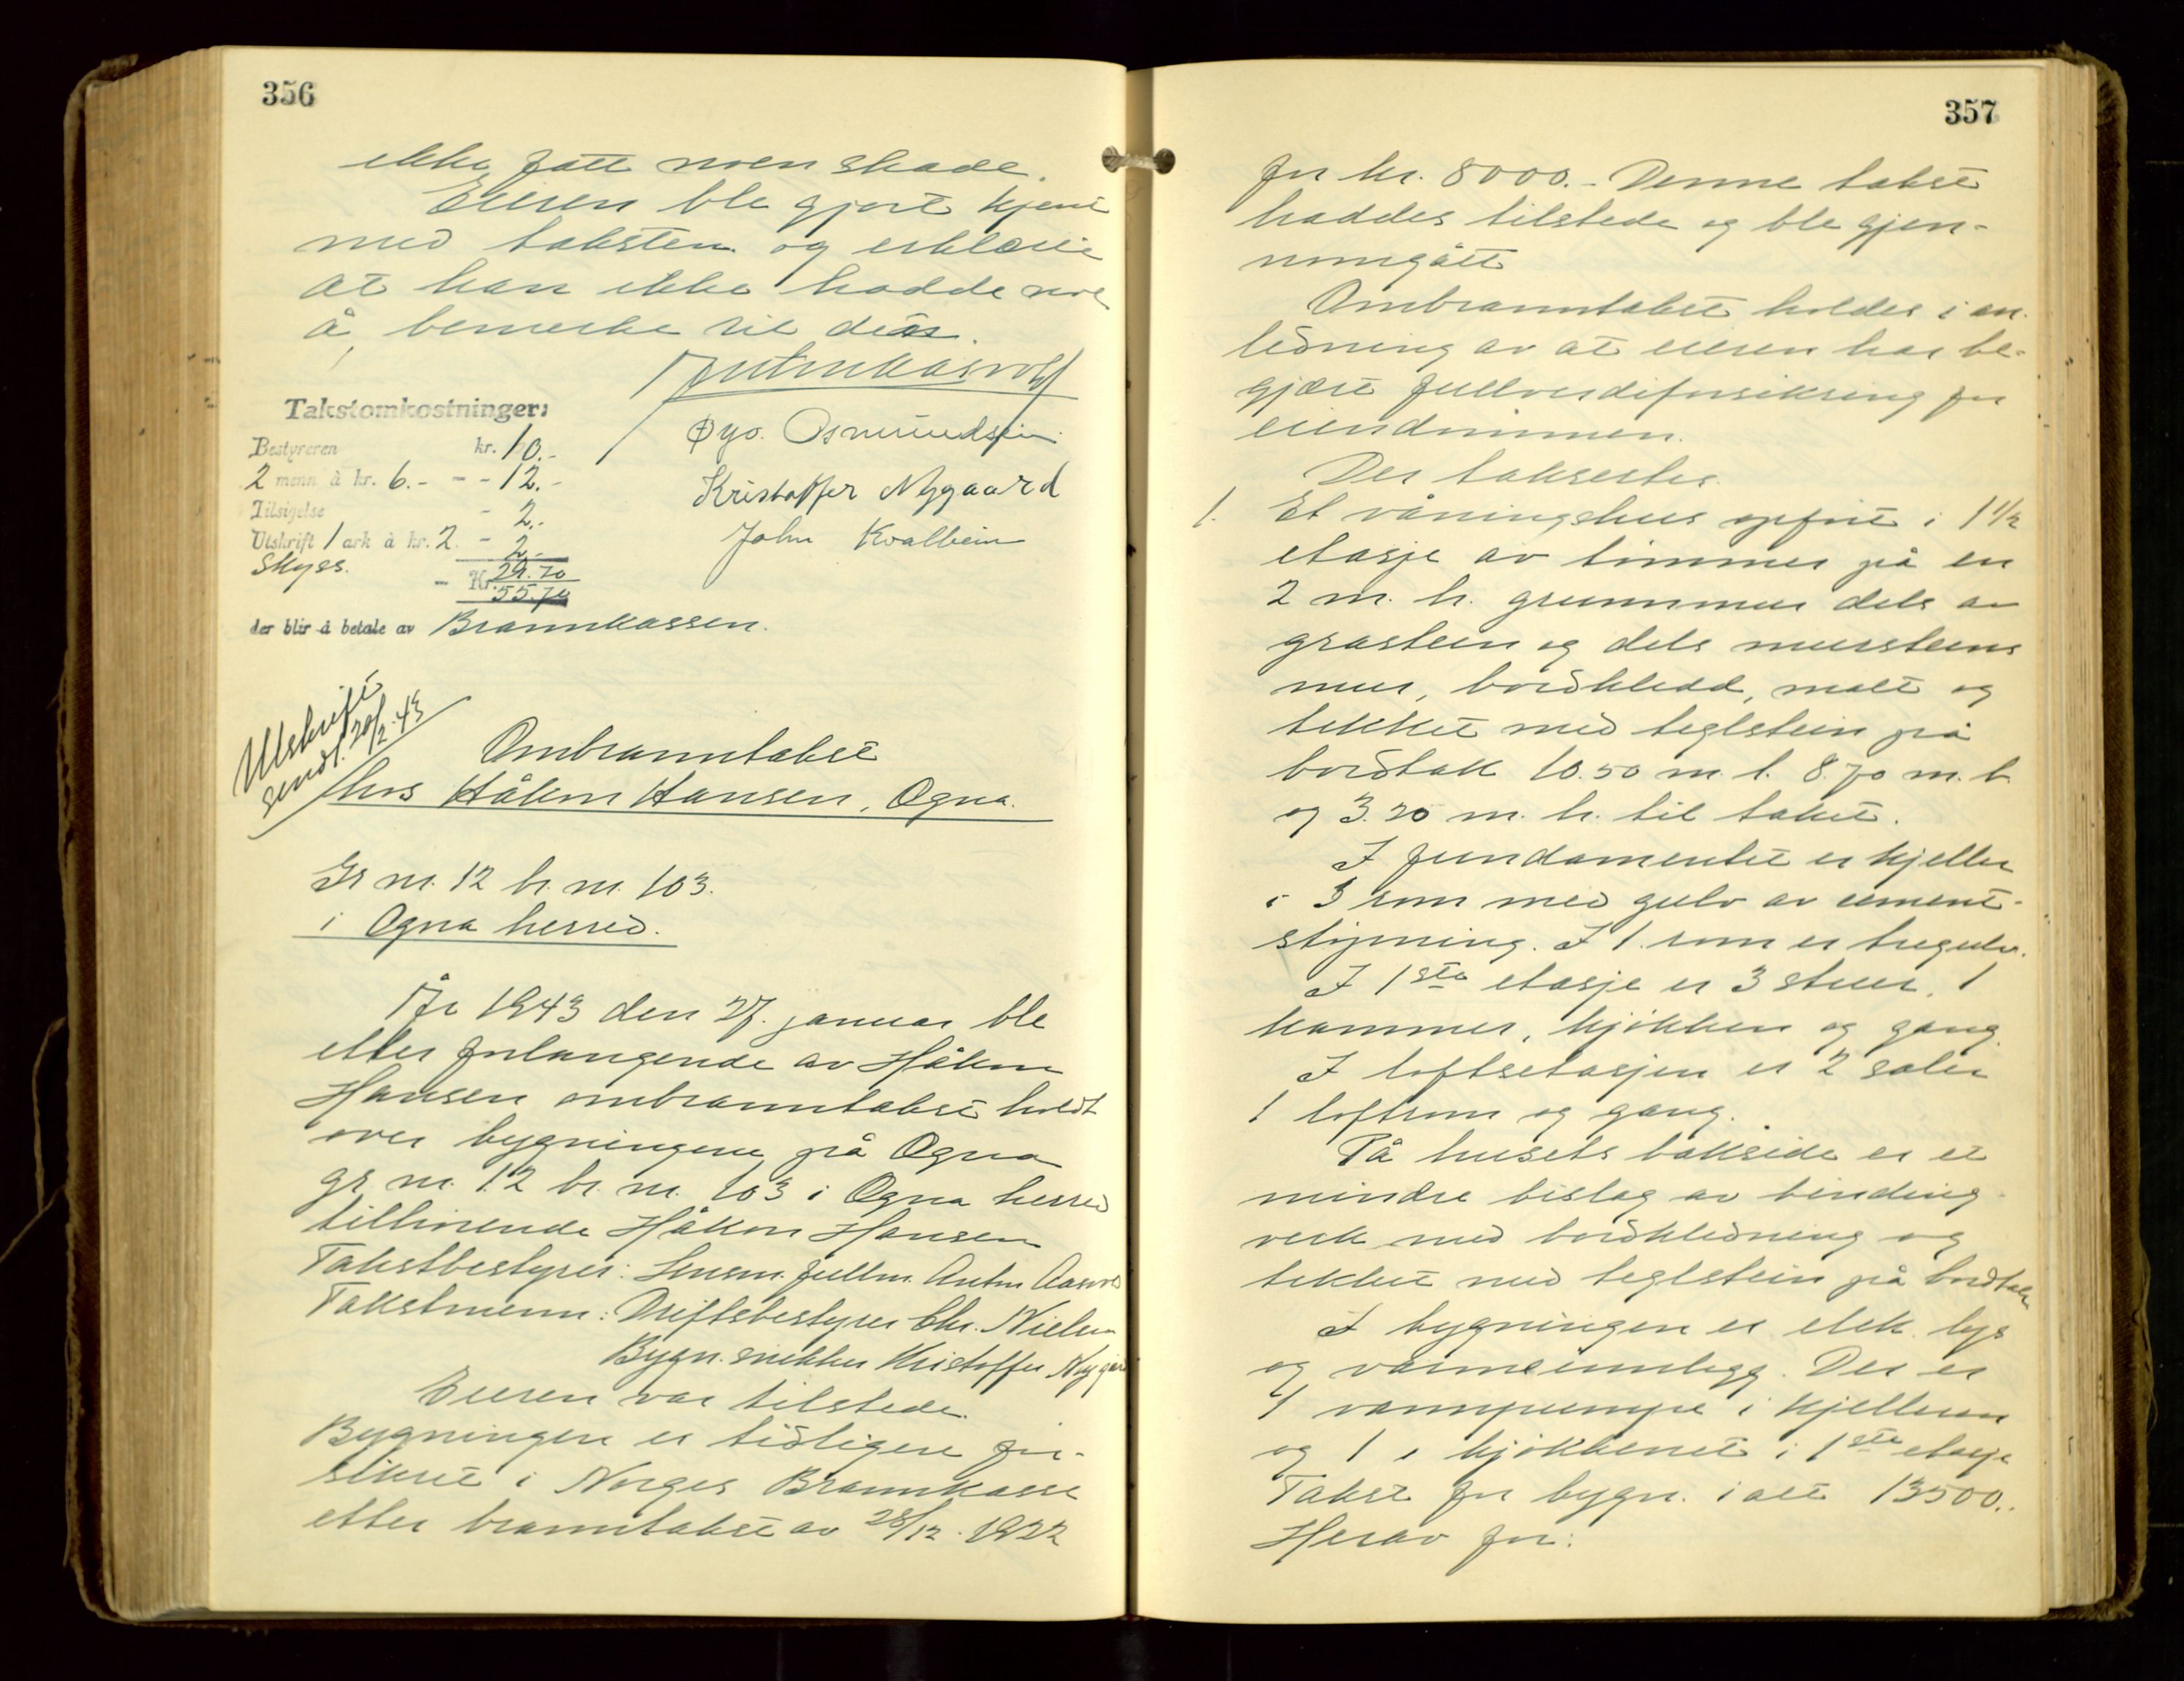 356
ikke fått noen skade.
Eieren ble gjort kjent
med taksten og erklærte
at han ikke hadde noe
å bemerke til den.
Takstomkostninger:
Bestyreren kr. 10.-
2 menn à kr. 6.- - - 12.-
Tilsigelse - 2.-
Utskrift 1 ark à kr. 2. - 2.-
Skyss. 29.70
- Kr. 55.70
der blir å betale av Brannkassen.
Anton Aasvold
Øyv. Osmundsen
Kristoffer Nygaard
John Kvalbein
Utskrift
sendt 20/2.43
Ombranntakst
hos Håkon Hansen, Ogna.
Gr nr. 12 br. nr. 103.
i Ogna herred.
År 1943 den 27. januar ble
etter forlangende av Håkon
Hansen ombranntakst holdt
over bygningene på Ogna
gr nr. 12 br. nr. 103 i Ogna herred
tilhørende Håkon Hansen
Takstbestyrer: Lensm. fullm. Anton Aasvold
Takstmenn: Driftsbestyrer Chr. Nielsen
Bygn. snekker Kristoffer Nygård
Eieren var tilstede.
Bygningen er tidligere for-
sikret i Norges Brannkasse
etter branntakst av 28/12. 1922
357
for kr. 8000.- Denne takst
haddes tilstede og ble gjen-
nomgått
Ombranntakst holdes i an-
ledning av at eieren har be-
gjært fullverdiforsikring for
eiendommen.
Der takseres
1. Et våningshus oppført i 1 1/2
etasje av tømmer på en
2 m. h. grunnmur dels av
gråstein og dels mursteins
mur, bordkledd, malt og
tekket med teglstein på
bordtak 10.50 m. l. 8.70 m. b.
og 3.20 m. h. til taket.
I fundamentet er kjeller
i 3 rom med gulv av cement-
støpning. I 1 rom er tregulv.
I 1ste etasje er 3 stuer, 1
kammer, kjøkken og gang.
I loftsetasjen er 2 saler
1 loftrom og gang.
På husets bakside er et
mindre bislag av binding-
verk med bordkledning og
tekket med teglstein på bordtak
I bygningen er elek. lys
og varmeinnlegg. Der er
1 vannpumpe i kjelleren
og 1 i kjøkkenet i 1ste etasje
Takst for bygn. i alt 13500..
Herav for: